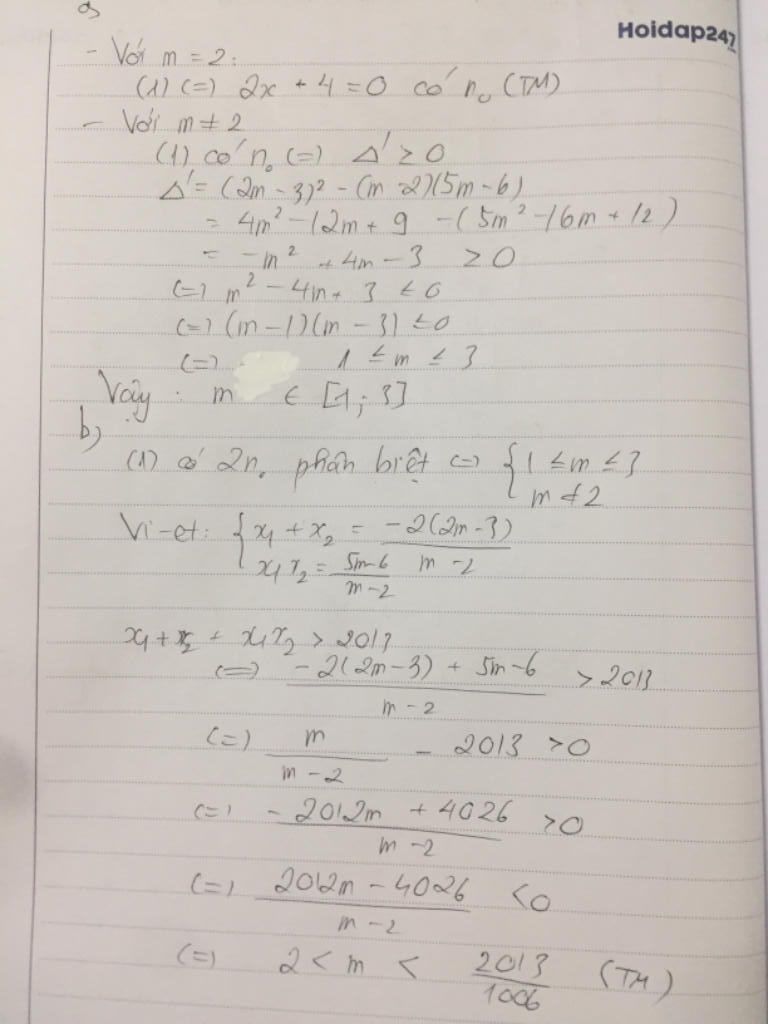 a)
Hoidap247
- Với m = 2:
(1) (=) 2x + 4 = 0 có n₀ (TM)
- Với m ≠ 2
(1) có n₀ (=) Δ' ≥ 0
Δ' = (2m - 3)² - (m - 2)(5m - 6)
= 4m² - 12m + 9 - (5m² - 16m + 12)
= -m² + 4m - 3 ≥ 0
(=) m² - 4m + 3 ≤ 0
(=) (m - 1)(m - 3) ≤ 0
(=) 1 ≤ m ≤ 3
Vậy : m ∈ [1; 3]
b)
(1) có 2n₀ phân biệt (=) { 1 ≤ m ≤ 3
m ≠ 2
Vi-et: { x₁ + x₂ = -2(2m - 3) / m - 2
x₁x₂ = 5m - 6 / m - 2
x₁ + x₂ + x₁x₂ > 2013
(=) -2(2m - 3) + 5m - 6 / m - 2 > 2013
(=) m / m - 2 - 2013 > 0
(=) -2012m + 4026 / m - 2 > 0
(=) 2012m - 4026 / m - 2 < 0
(=) 2 < m < 2013 / 1006 (TM)